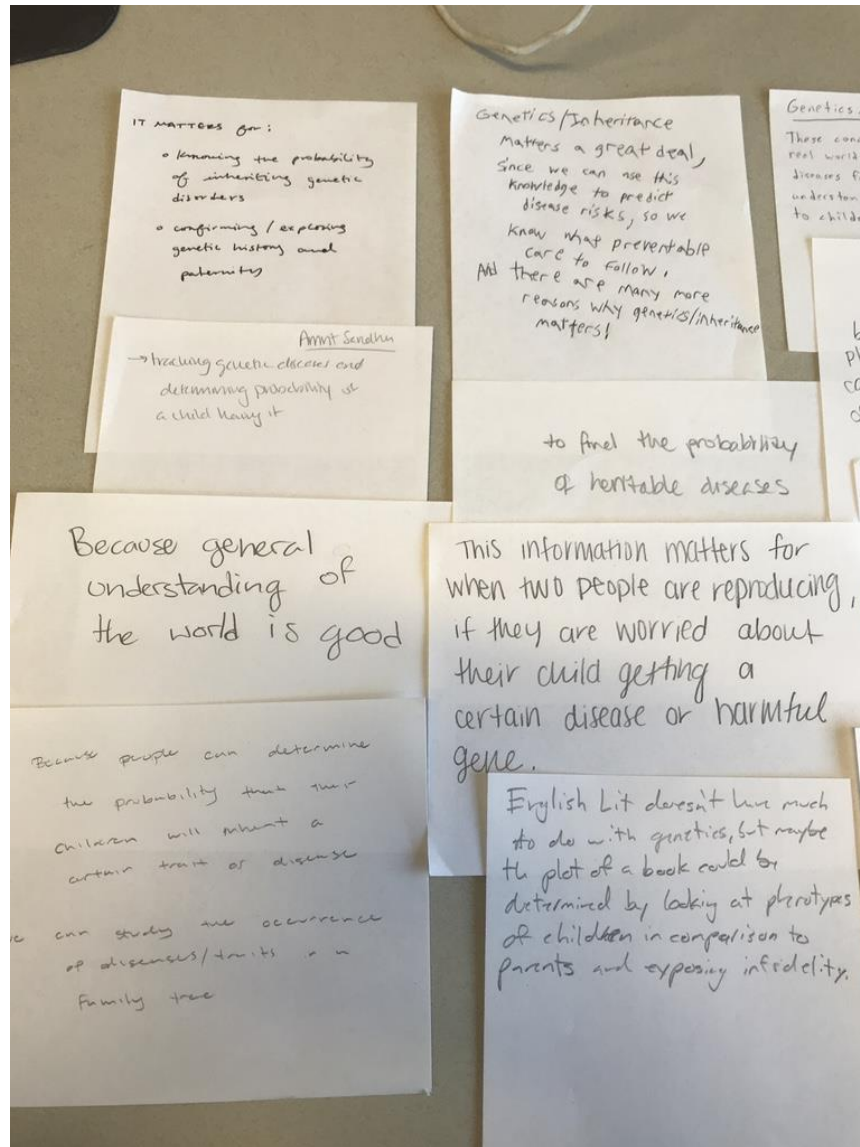 IT MATTERS for:
• knowing the probability
of inheriting genetic
disorders
• confirming / exposing
genetic history and
paternity
Amrit Sandhu
→ tracking genetic diseases and
determining probability of
a child having it
Because general
understanding of
the world is good
Because people can determine
the probability that their
children will inherit a
certain trait or disease
can study the occurrence
of diseases/traits in
Family tree
Genetics/Inheritance
Matters a great deal,
Since we can use this
knowledge to predict
disease risks, so we
know what preventable
care to follow.
And there are many more
reasons why genetics/inheritance
matters!
to find the probability
of heritable diseases
This information matters for
when two people are reproducing,
if they are worried about
their child getting a
certain disease or harmful
gene.
English Lit doesn't have much
to do with genetics, but maybe
the plot of a book could be
determined by looking at phenotypes
of children in comparison to
parents and exposing infidelity.
Genetics
These
real world
diseases
to